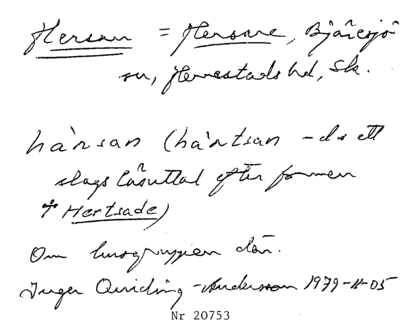 Hersan = Hersane, Bjäresjö
sn, Herrestads hd, Sk.
hà'nsan (hà'ntsan – ds ett
slags läsuttal efter formen
Hertsade)
Om husgruppen där.
Inger Quiding-Andersson 1979-11-05
Nr 20753